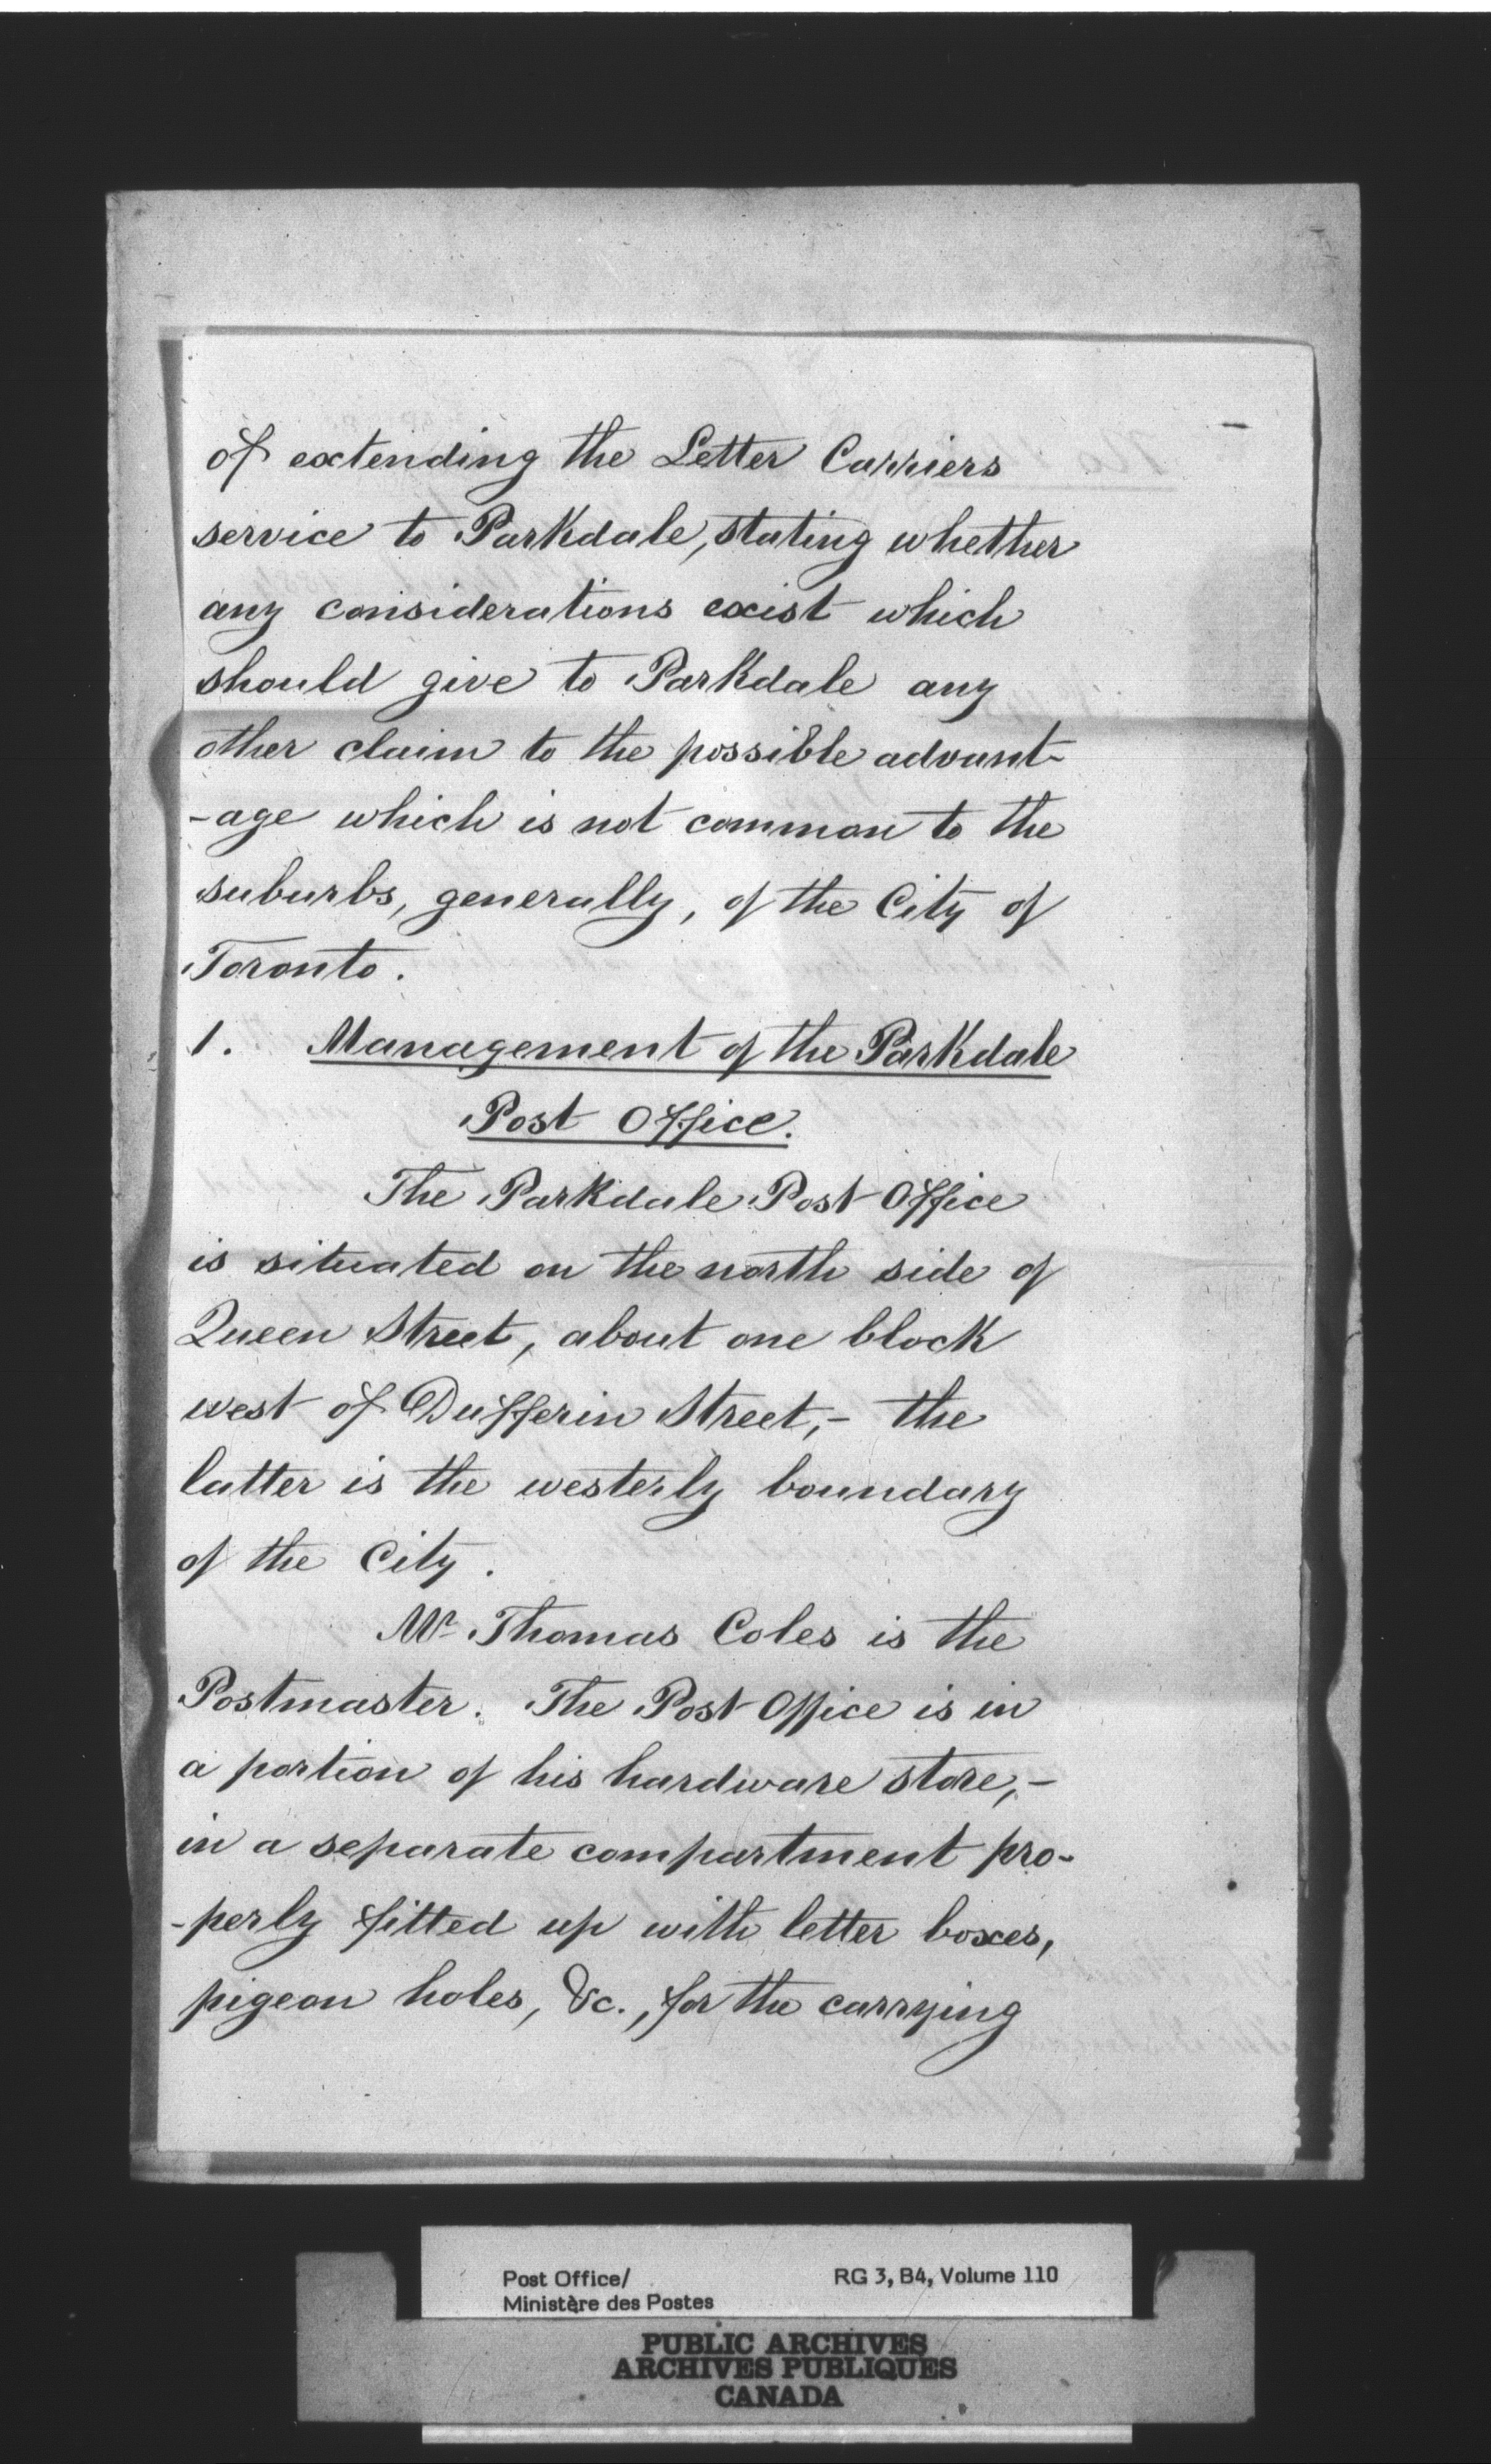 of extending the Letter Carriers
service to Parkdale, stating whether
any considerations exist which
should give to Parkdale any
other claim to the possible advant-
-age which is not common to the
suburbs, generally, of the City of
Toronto.
1. Management of the Parkdale
Post Office.
The Parkdale Post Office
is situated on the north side of
Queen Street, about one block
west of Dufferin Street,- the
latter is the westerly boundary
of the City.
Mr Thomas Coles is the
Postmaster. The Post Office is in
a portion of his hardware store,-
in a separate compartment pro-
-perly fitted up with letter boxes,
pigeon holes, &c., for the carrying
Post Office/ RG 3, B4, Volume 110
Ministère des Postes
PUBLIC ARCHIVES
ARCHIVES PUBLIQUES
CANADA